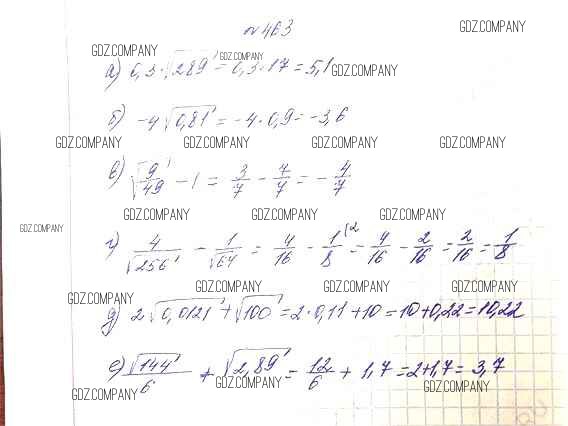 № 463
GDZ.COMPANY
GDZ.COMPANY
GDZ.COMPANY
а) 0,3·√289 = 0,3·17 = 5,1
GDZ.COMPANY
б) -4√0,81 = -4·0,9 = -3,6
GDZ.COMPANY GDZ.COMPANY GDZ.COMPANY GDZ.COMPANY
в) √9/49 - 1 = 3/7 - 7/7 = -4/7
GDZ.COMPANY GDZ.COMPANY GDZ.COMPANY
GDZ.COMPANY
г) 4/√256 - 1/√64 = 4/16 - 1/8 (2 = 4/16 - 2/16 = 2/16 = 1/8
GDZ.COMPANY GDZ.COMPANY GDZ.COMPANY GDZ.COMPANY
д) 2·√0,0121 + √100 = 2·0,11 + 10 = 10 + 0,22 = 10,22
е) √144/6 + √2,89 = 12/6 + 1,7 = 2 + 1,7 = 3,7
GDZ.COMPANY GDZ.COMPANY GDZ.COMPANY